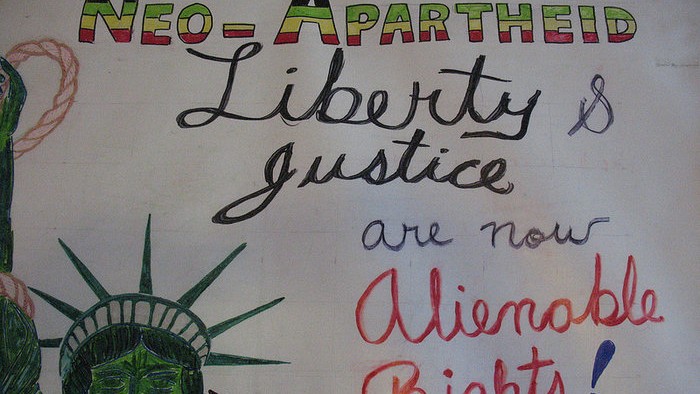 NEO-APARTHEID
Liberty &
Justice
are now
Alienable
Rights!